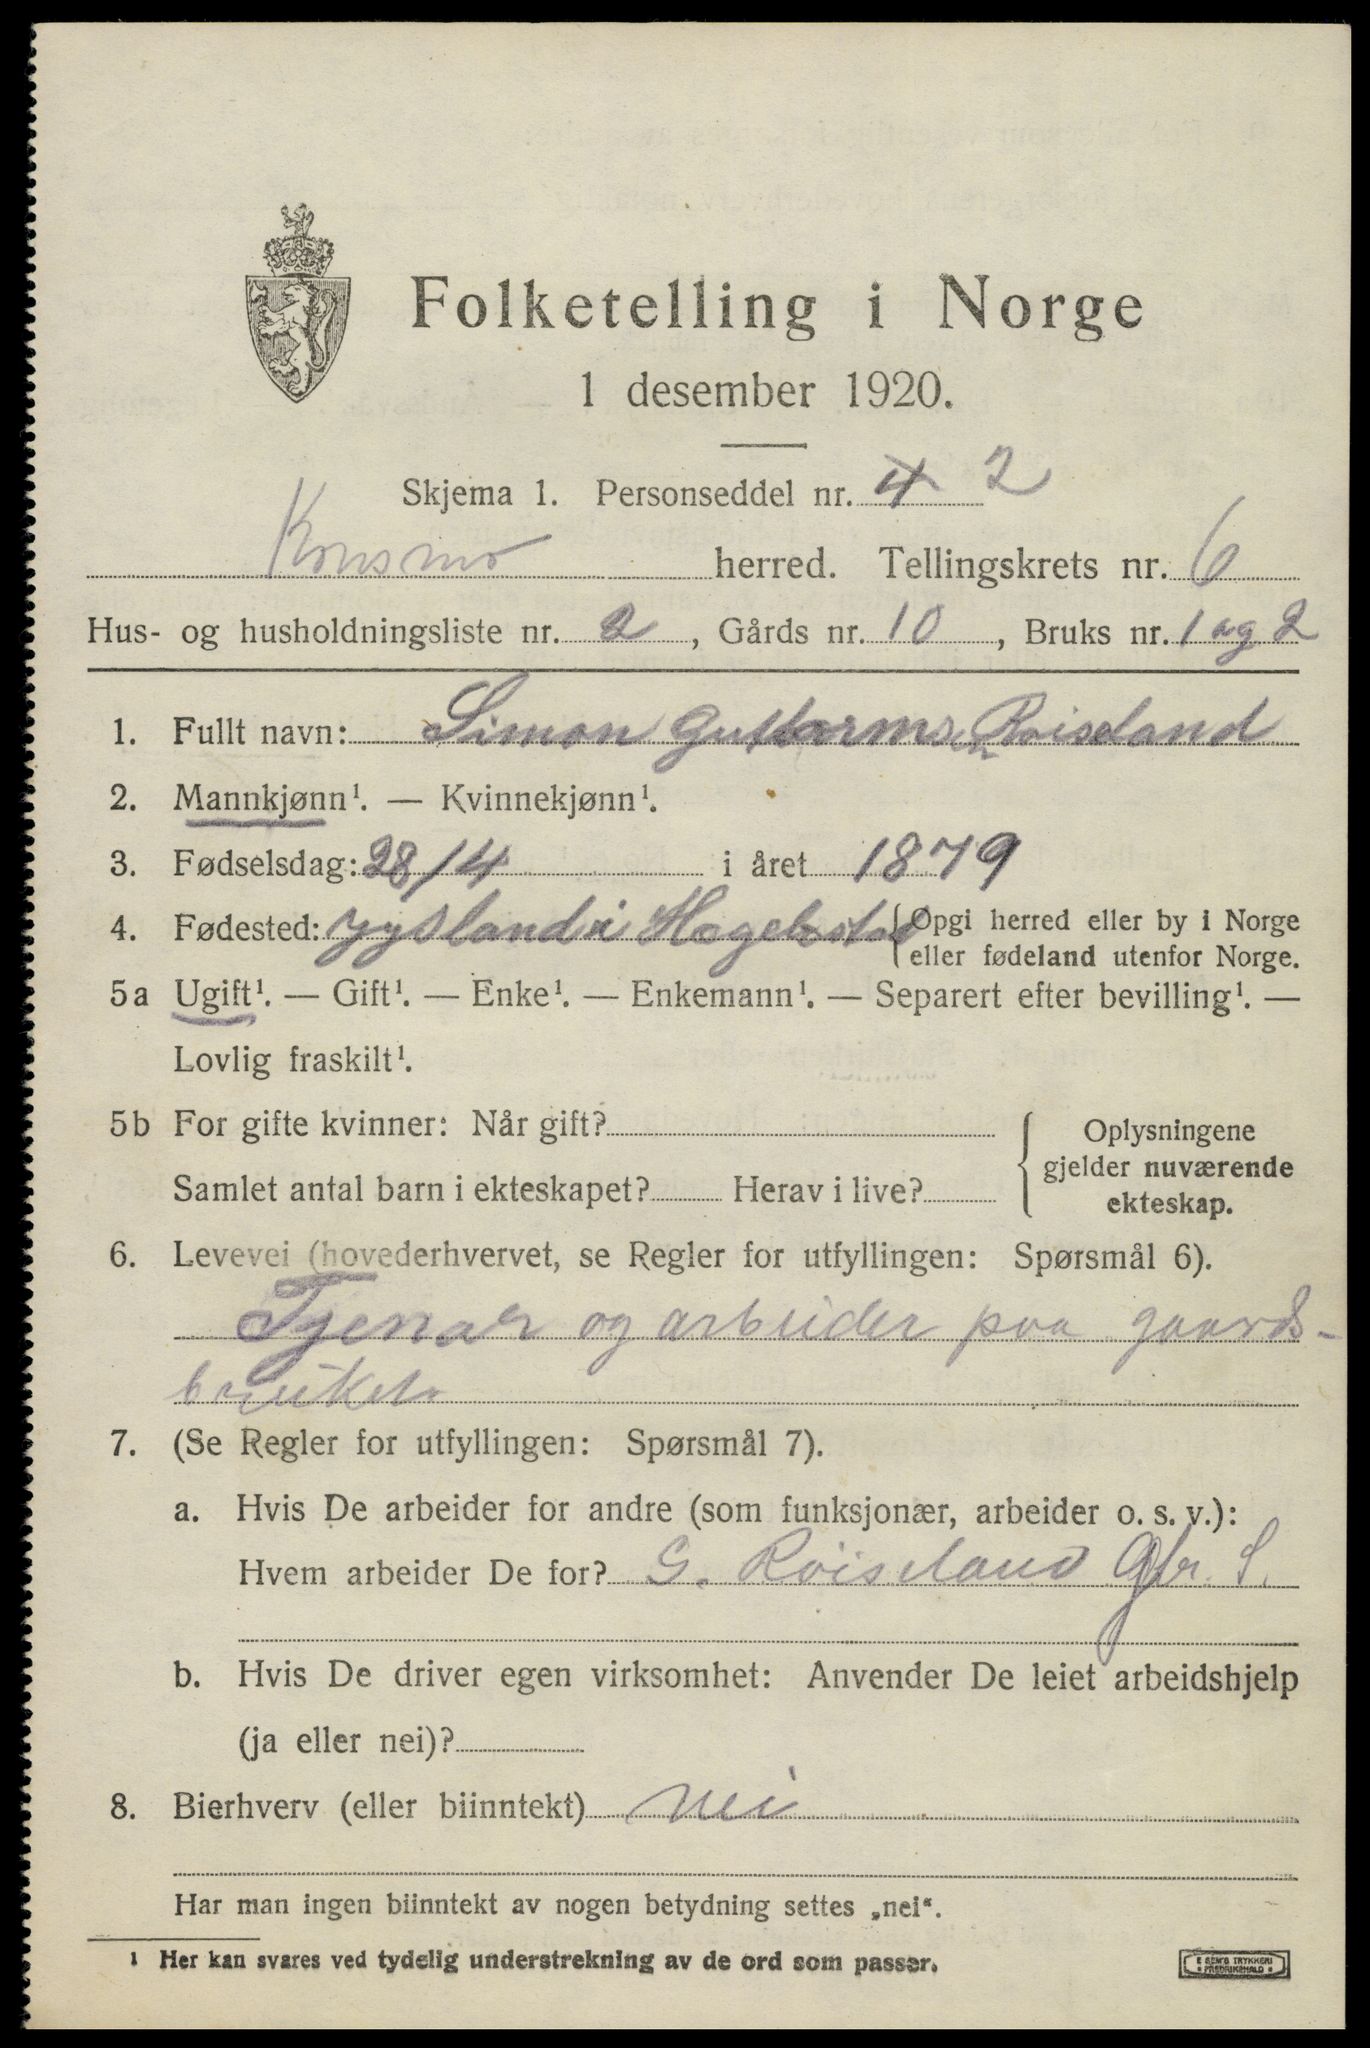 Folketelling i Norge
1 desember 1920.
Skjema 1. Personseddel nr. 4 2
Konsmo herred. Tellingskrets nr. 6
Hus- og husholdningsliste nr. 2, Gårds nr. 10, Bruks nr. 1 og 2
1. Fullt navn: Simon Guttormsen Røiseland
2. Mannkjønn¹. — Kvinnekjønn¹.
3. Fødselsdag: 28/4 i året 1879
4. Fødested: i Hægebostad {Opgi herred eller by i Norge
eller fødeland utenfor Norge.
5a Ugift¹. — Gift¹. — Enke¹. — Enkemann¹. — Separert efter bevilling¹. —
Lovlig fraskilt¹.
5b For gifte kvinner: Når gift?
Samlet antal barn i ekteskapet? Herav i live?
{Oplysningene
gjelder nuværende
ekteskap.
6. Levevei (hovederhvervet, se Regler for utfyllingen: Spørsmål 6).
Tjenar og arbeider paa gaards-
bruket.
7. (Se Regler for utfyllingen: Spørsmål 7).
a. Hvis De arbeider for andre (som funksjonær, arbeider o. s. v.):
Hvem arbeider De for? G. Röiseland Gbr. S.
b. Hvis De driver egen virksomhet: Anvender De leiet arbeidshjelp
(ja eller nei)?
8. Bierhverv (eller biinntekt) nei
Har man ingen biinntekt av nogen betydning settes „nei“.
¹ Her kan svares ved tydelig understrekning av de ord som passer.
E SEM'S TRYKKERI
FREDRIKSHALD